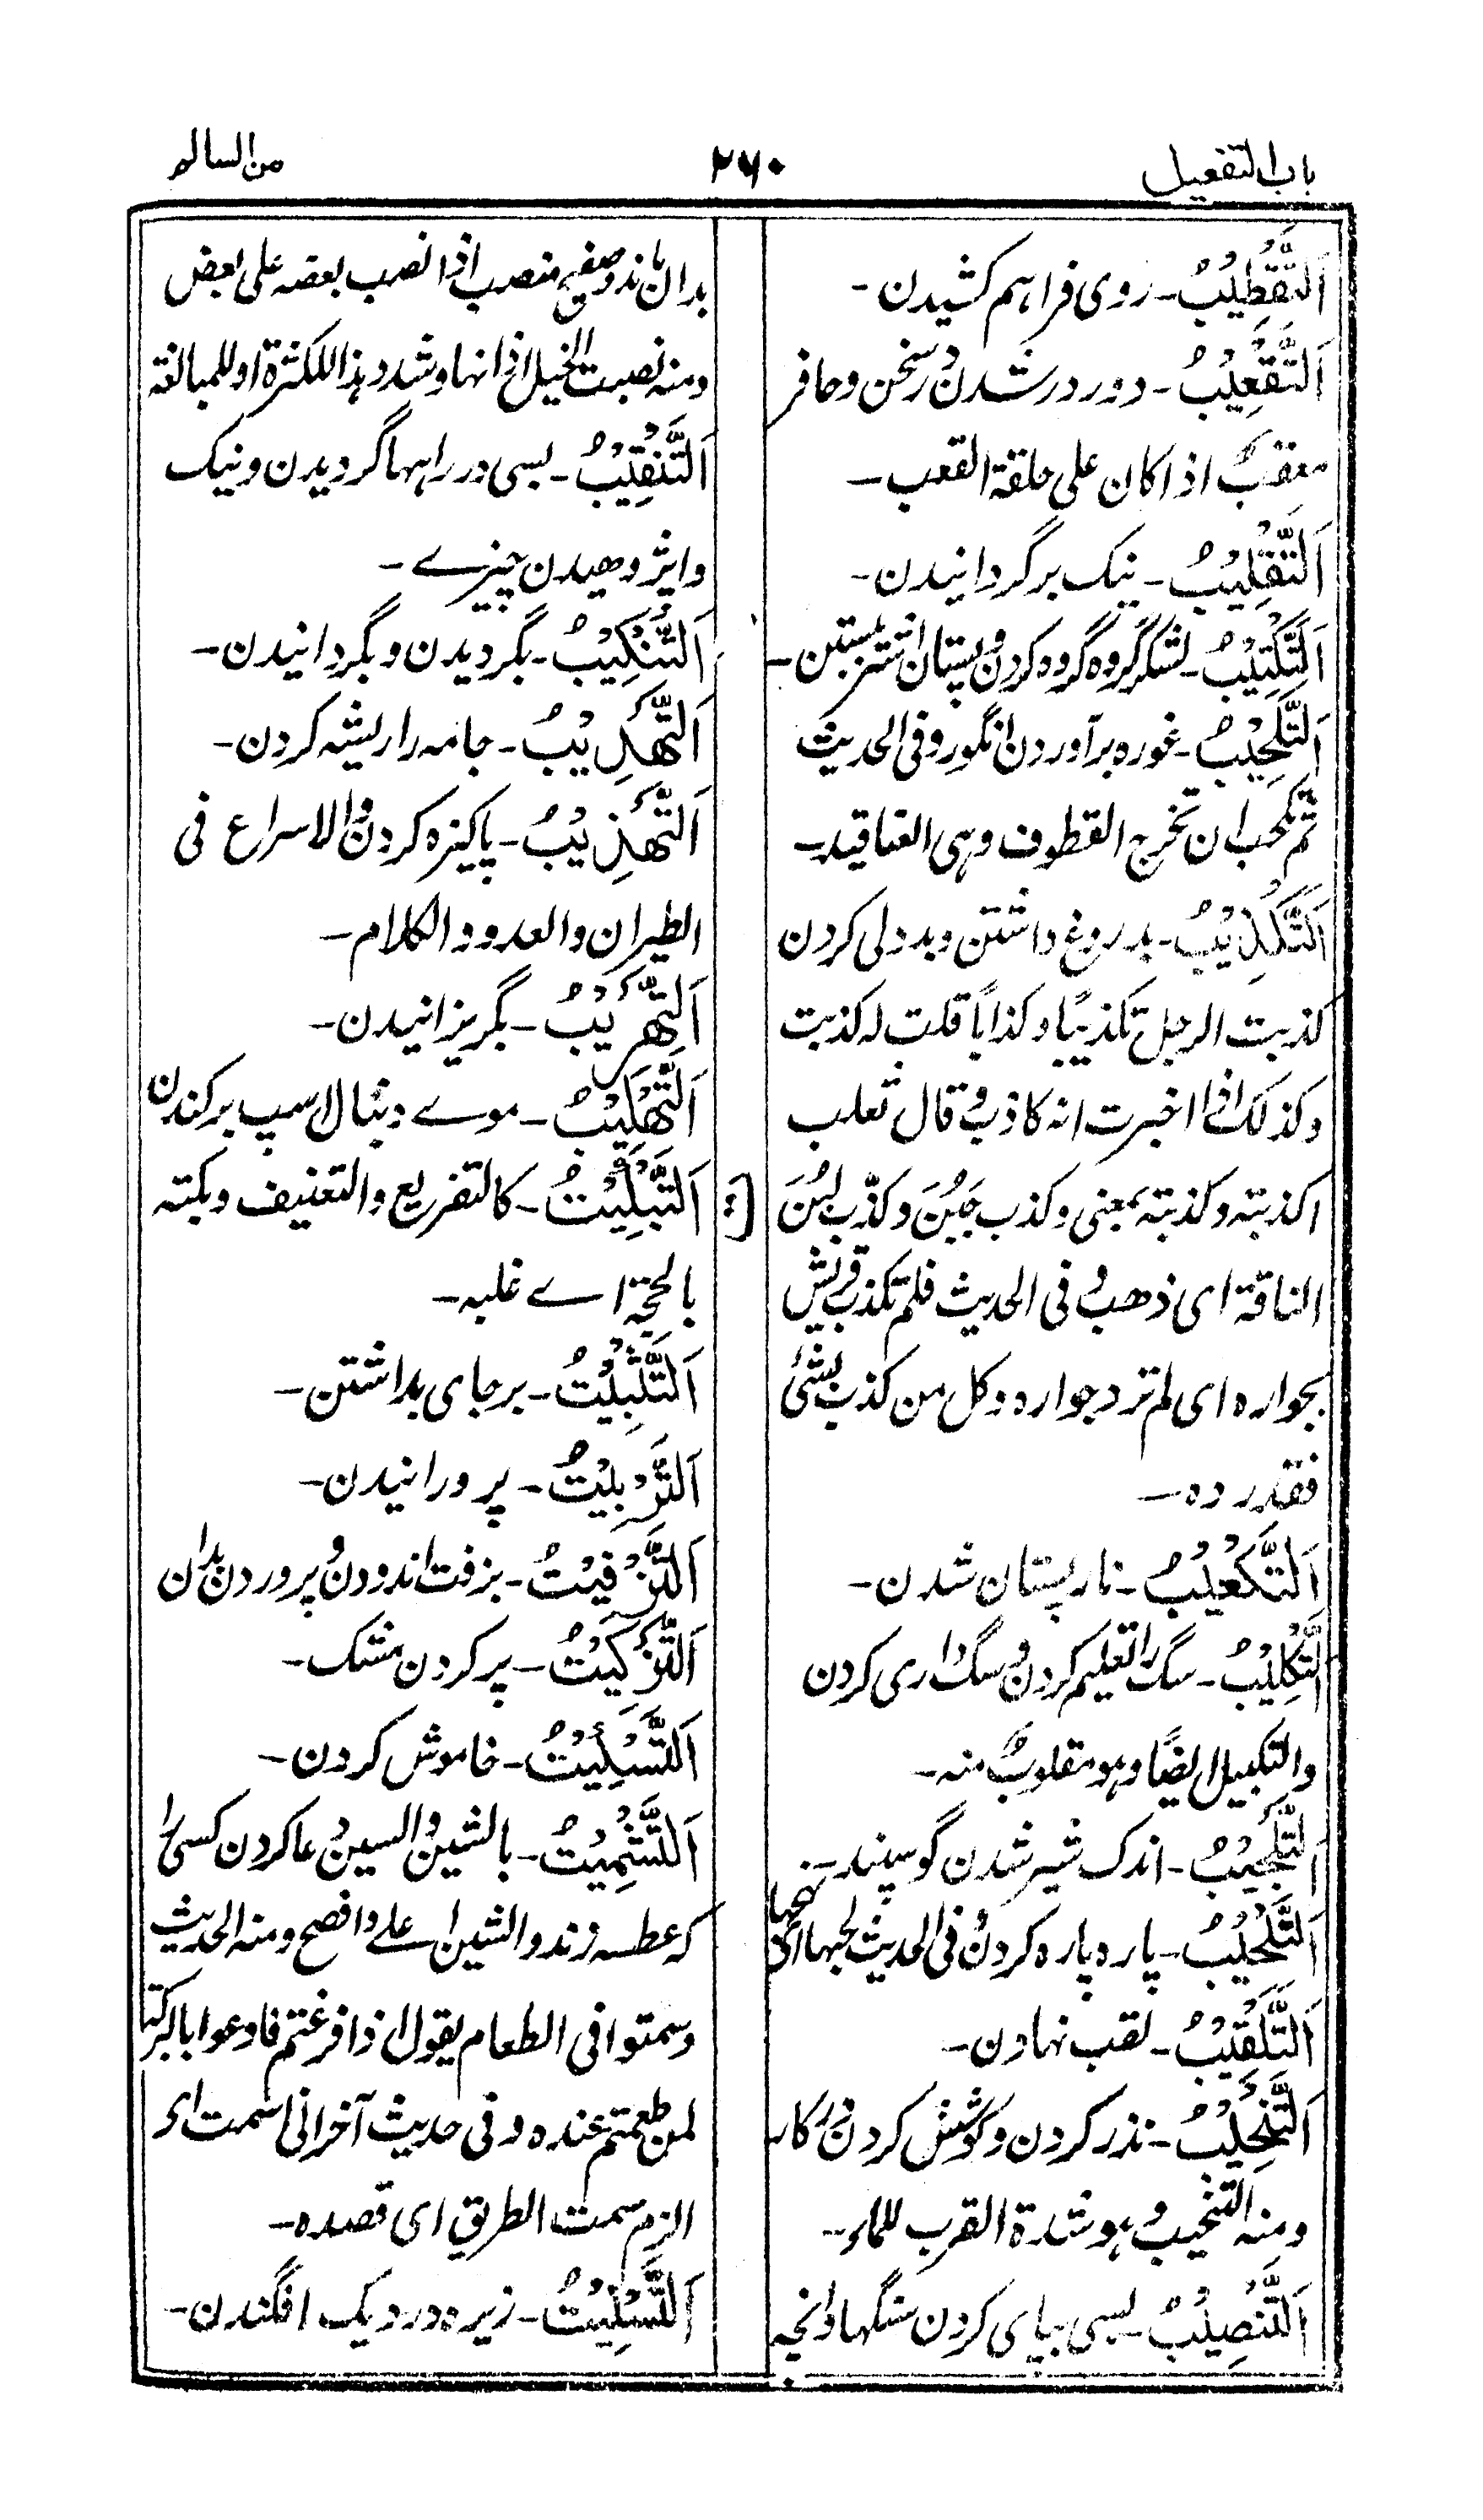 باب التفعیل
۲۶۰
من السالم
اَلتَّقْطِیْبُ۔ روی فراہم کشیدن۔
اَلتَّقْعِیْبُ۔ دور در شدن در سخن وحافر
مقعبٌ اذا کان علی خلقة القعب۔
اَلتَّقْلِیْبُ۔ نیک برگردانیدن۔
اَلتَّکْتِیْبُ۔ لشکر گروہ گروہ کردن و پستان اشتر بستن۔
اَلتَّکْحِیْبُ۔ غورہ برآوردن انگور و فی الحدیث
ثم تکحب ان تخرج القطوف وہی العناقید۔
اَلتَّکْذِیْبُ۔ بدروغ داشتن وبددلی کردن
کذبت الرجل تکذیبًا وکذابًا قلت لہ کذبت
وکذلک اذا اخبرت انہ کاذب و قال ثعلب
اکذبتہ وکذبتہ بمعنی وکذب جَبُنَ وکذّب لبنَ
الناقة ای ذھب و فی الحدیث فلم تکذب قریش
بجوارہ ای لم ترد جوارہ وکل من کذب بشئ
فقد ردہ۔
اَلتَّکْعِیْبُ۔ نار پستان شدن۔
اَلتَّکْلِیْبُ۔ سگ را تعلیم کردن و سگ داری کردن
والتکبیل ایضًا وہو مقلوبٌ منہ۔
اَلتَّلْجِیْبُ۔ اندک شیر شدن گوسپند۔
اَلتَّلْحِیْبُ۔ پارہ پارہ کردن و فی الحدیث لحبہا ای نہجہا
اَلتَّلْقِیْبُ۔ لقب نہادن۔
اَلتَّنْحِیْبُ۔ نذر کردن و کوشش کردن در کار
ومنہ التنحیب وہو شدة القرب للماء۔
اَلتَّنْصِیْبُ۔ بسی بپای کردن سنگہا وانچہ
بدان ماند وصفیح منصب اذا نصب بعضہ علی بعض
ومنہ نصبت الخیل اذانہا وشدد ہذا للکثرة او للمبالغة
اَلتَّنْقِیْبُ۔ بسی در راہہا گردیدن ونیک
واپژوهیدن چیزے۔
اَلتَّنْکِیْبُ۔ بگردیدن وبگردانیدن۔
اَلتَّهْدِیْبُ۔ جامہ را ریشہ کردن۔
اَلتَّهْذِیْبُ۔ پاکیزہ کردن و الاسراع فی
الطیران والعدو والکلام۔
اَلتَّهْرِیْبُ۔ بگریزانیدن۔
اَلتَّهْلِیْبُ۔ موے دنبال اسپ برکندن
[ت] اَلتَّبْکِیْتُ۔ کالتقریع والتعنیف وبکتہ
بالحجة اے غلبہ۔
اَلتَّثْبِیْتُ۔ برجای بداشتن۔
اَلتَّرْبِیْتُ۔ پرورانیدن۔
اَلتَّزْفِیْتُ۔ بزفت اندودن و پروردن بدان
اَلتَّزْکِیْتُ۔ پر کردن مشک۔
اَلتَّسْکِیْتُ۔ خاموش کردن۔
اَلتَّشْمِیْتُ۔ بالشین والسین دعا کردن کسی را
کہ عطسہ زند والشین اعلے وافصح ومنہ الحدیث
وسمتوا فی الطعام یقول اذا فرغتم فادعوا بالبرکة
لمن طعمتم عندہ وفی حدیث آخر انی اسمت ای
الزم سمت الطریق ای قصدہ۔
اَلتَّسْلِیْتُ۔ زیرہ در دیک افگندن۔